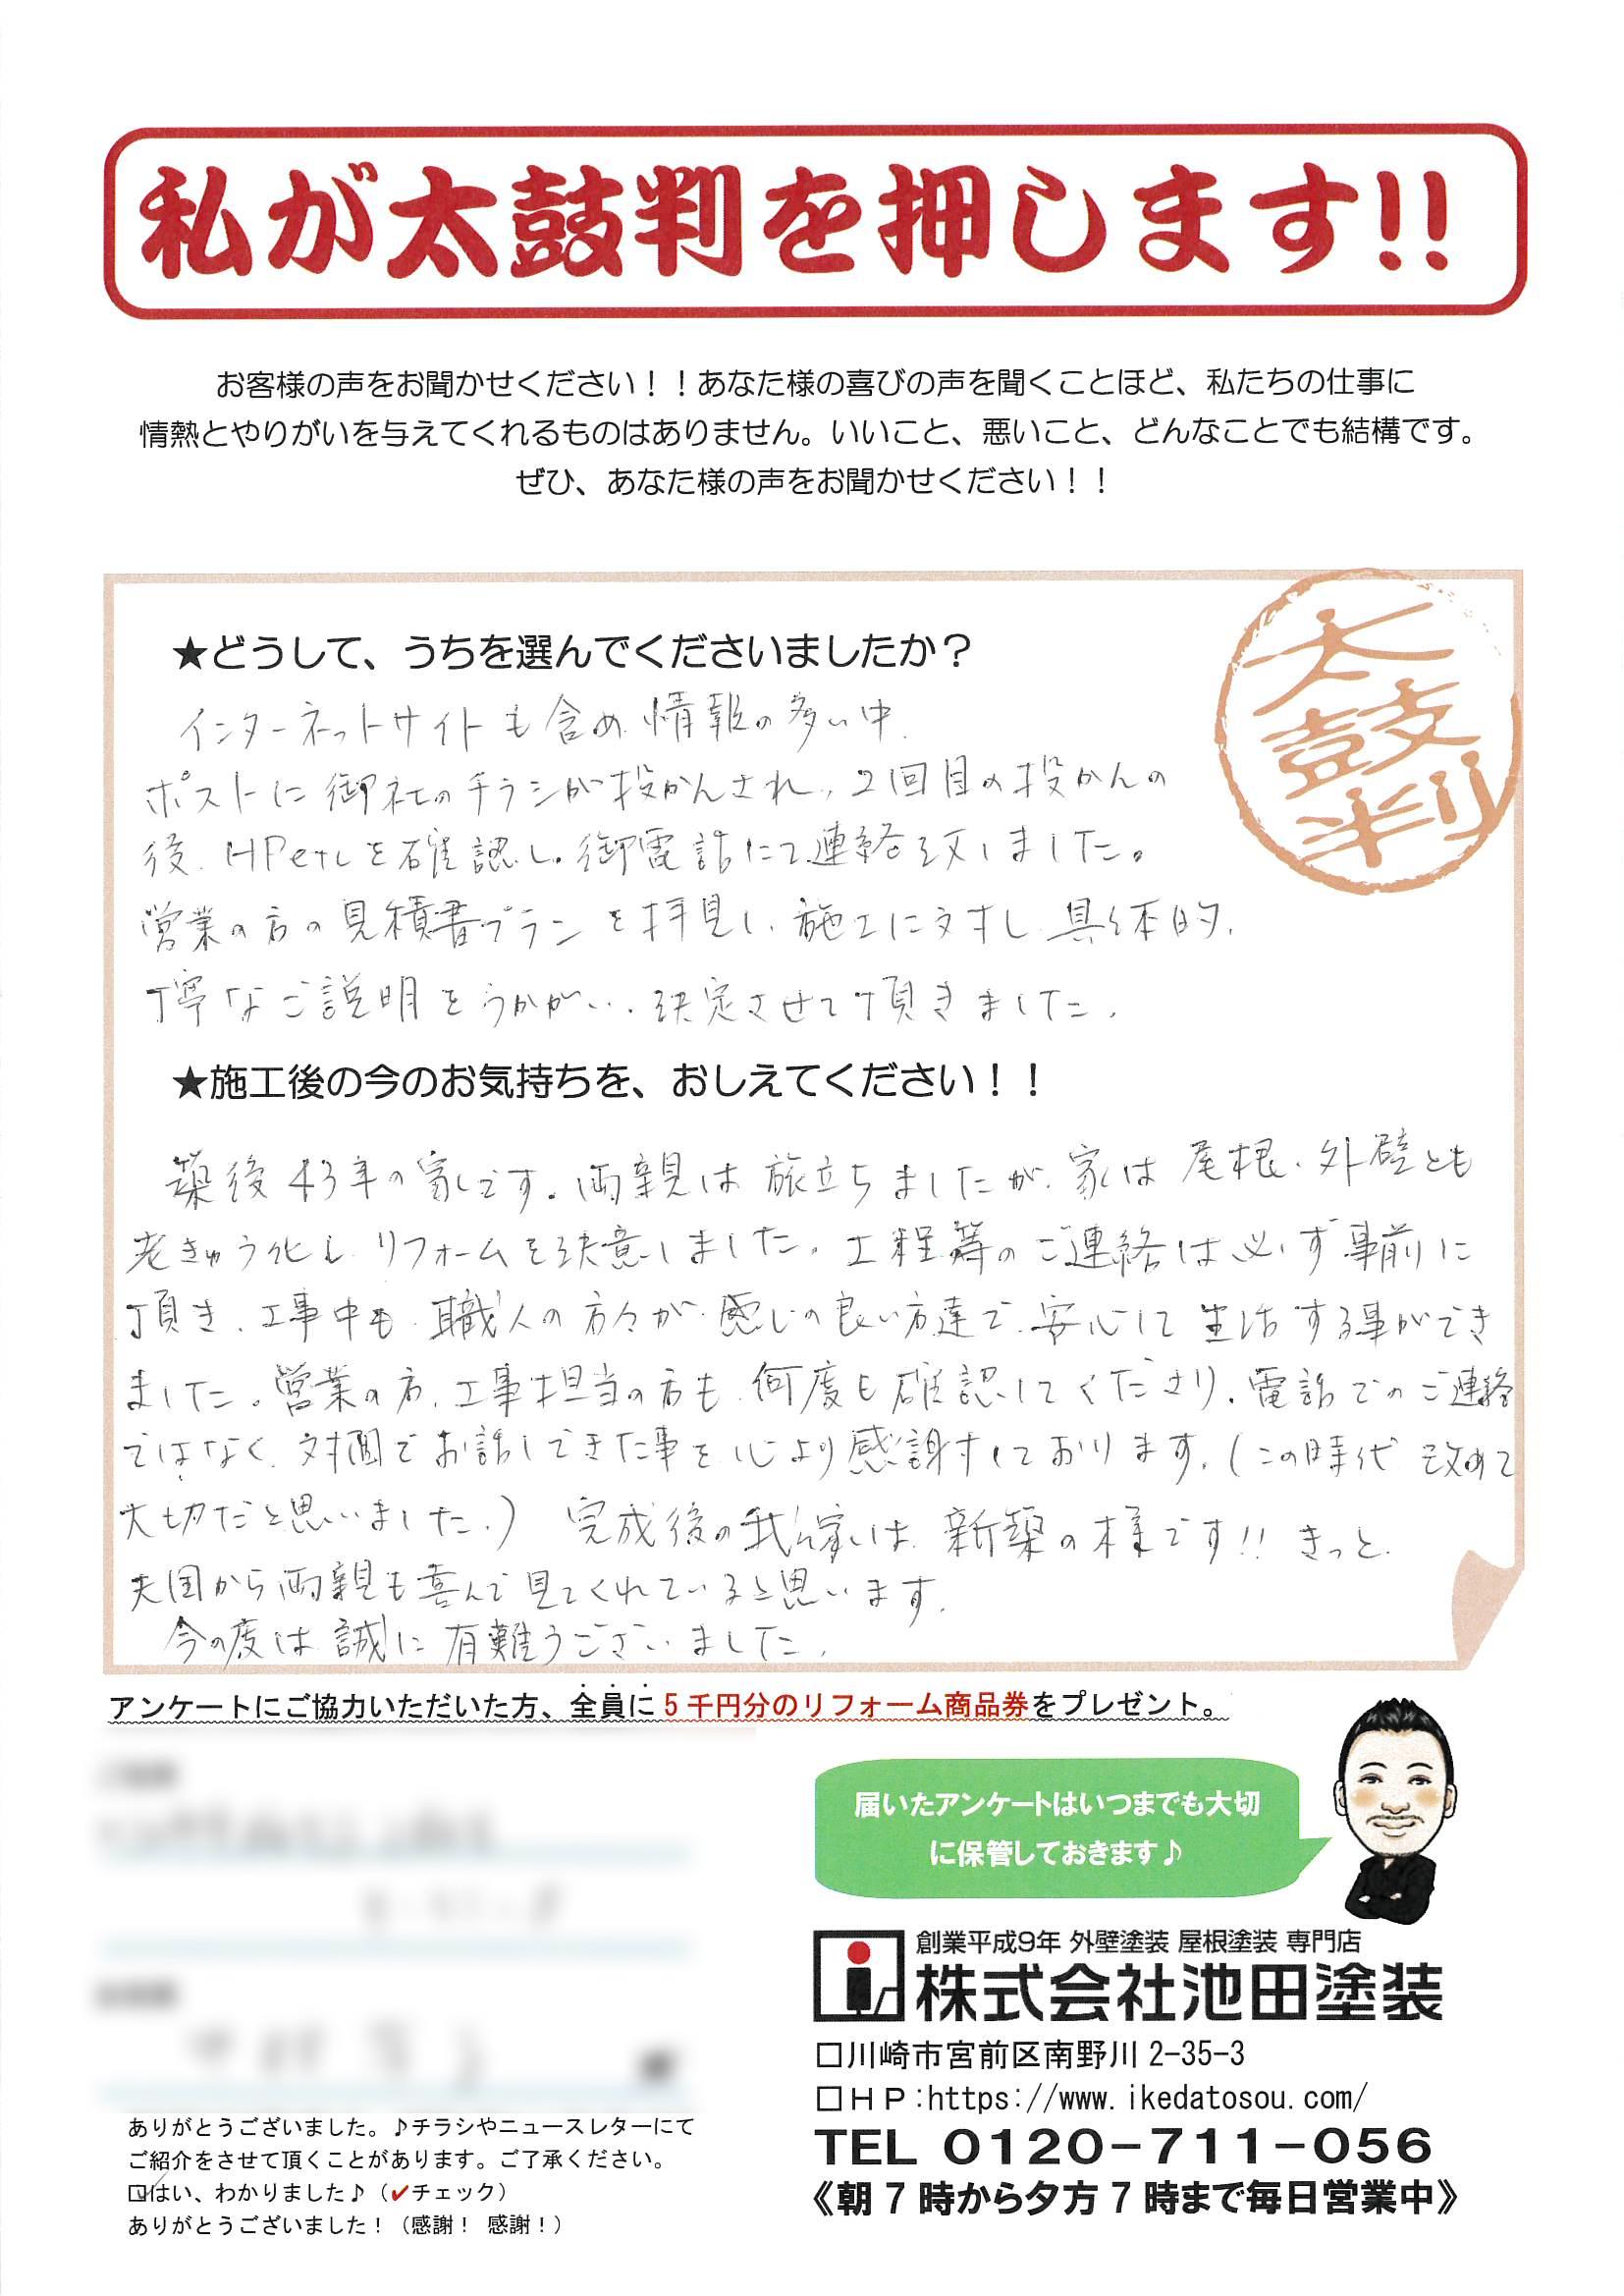 私が太鼓判を押します!!
お客様の声をお聞かせください！！あなた様の喜びの声を聞くことほど、私たちの仕事に
情熱とやりがいを与えてくれるものはありません。いいこと、悪いこと、どんなことでも結構です。
ぜひ、あなた様の声をお聞かせください！！
太鼓判
★どうして、うちを選んでくださいましたか？
インターネットサイトも含め 情報の多い中、
ポストに御社のチラシが投かんされ、2回目の投かんの
後、HPetcを確認し、御電話にて連絡致しました。
営業の方の見積書プランを拝見し、施工に対し 具体的、
丁寧なご説明をうかがい、決定させて頂きました。
★施工後の今のお気持ちを、おしえてください！！
築後43年の家です。両親は旅立ちましたが、家は屋根・外壁とも
老きゅう化し、リフォームを決意しました。工程等のご連絡は必ず事前に
頂き、工事中も、職人の方々が感じの良い方達で、安心して生活する事ができ
ました。営業の方、工事担当の方も、何度も確認してくださり、電話でのご連絡
ではなく、対面でお話しできた事を心より感謝しております。(この時代 改めて
大切だと思いました。) 完成後の我が家は、新築の様です!! きっと、
天国から両親も喜んで見てくれていると思います。
今の度は 誠に有難うございました。
アンケートにご協力いただいた方、全員に5千円分のリフォーム商品券をプレゼント。
届いたアンケートはいつまでも大切
に保管しておきます♪
創業平成9年 外壁塗装 屋根塗装 専門店
株式会社池田塗装
□川崎市宮前区南野川2-35-3
□ＨＰ:https://www.ikedatosou.com/
TEL 0120-711-056
《朝7時から夕方7時まで毎日営業中》
ありがとうございました。♪チラシやニュースレターにて
ご紹介をさせて頂くことがあります。ご了承ください。
☑はい、わかりました♪（✓チェック）
ありがとうございました！（感謝！ 感謝！）